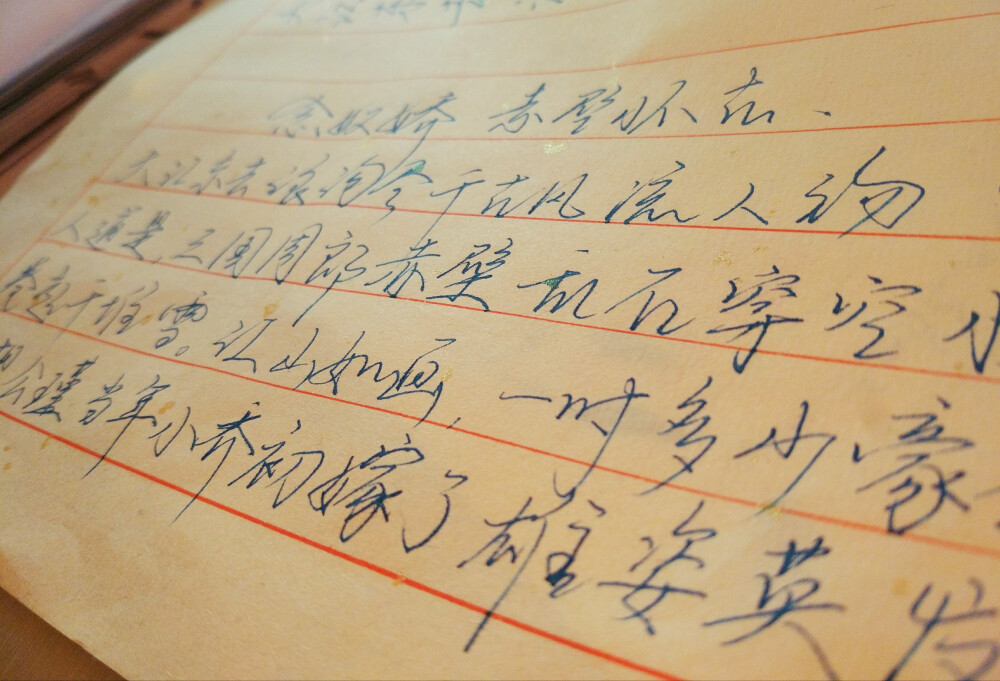 念奴娇 赤壁怀古、
大江东去浪淘今千古风流人物
人道是三国周郎赤壁乱石穿空
卷起千堆雪。江山如画,一时多少豪
公瑾当年小乔初嫁了雄姿英发